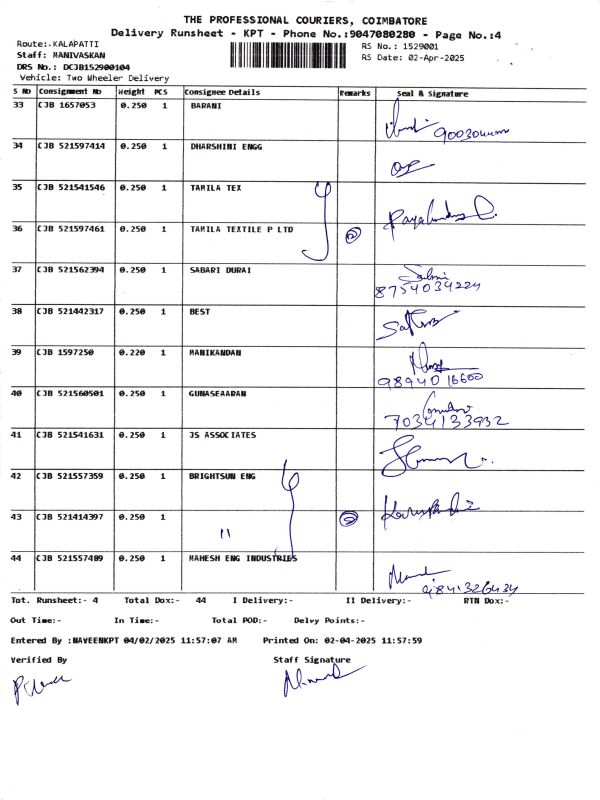 THE PROFESSIONAL COURIERS, COIMBATORE
Delivery Runsheet - KPT - Phone No.:9047080280 - Page No.:4
Route:.KALAPATTI
RS No.: 1529001
Staff: MANIVASKAN
RS Date: 02-Apr-2025
DRS No.: DCJB152900104
Vehicle: Two Wheeler Delivery
S No Consignment No Weight PCS Consignee Details Remarks Seal & Signature
33 CJB 1657053 0.250 1 BARANI
34 CJB 521597414 0.250 1 DHARSHINI ENGG
35 CJB 521541546 0.250 1 TAMILA TEX
36 CJB 521597461 0.250 1 TAMILA TEXTILE P LTD
37 CJB 521562394 0.250 1 SABARI DURAI
8754034224
38 CJB 521442317 0.250 1 BEST
39 CJB 1597250 0.220 1 MANIKANDAN
98940 16600
40 CJB 521560501 0.250 1 GUNASEAARAN
7034133932
41 CJB 521541631 0.250 1 JS ASSOCIATES
42 CJB 521557359 0.250 1 BRIGHTSUN ENG
43 CJB 521414397 0.250 1 "
44 CJB 521557489 0.250 1 MAHESH ENG INDUSTRIES
Tot. Runsheet:- 4 Total Dox:- 44 I Delivery:- II Delivery:- RTN Dox:-
Out Time:- In Time:- Total POD:- Delvy Points:-
Entered By :NAVEENKPT 04/02/2025 11:57:07 AM Printed On: 02-04-2025 11:57:59
Verified By Staff Signature